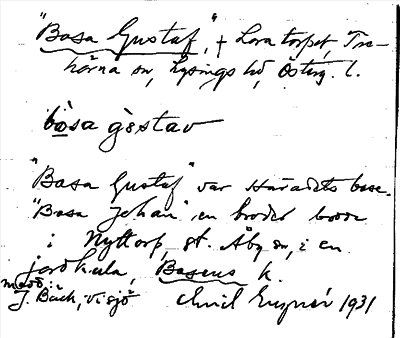 "Basa Gustaf", † Lora torpet, Tre-
hörna sn, Lysings hd, Österg. l.
bösa gèstav
"Basa Gustaf" var Häradets base.
"Basa Johan" en broder bodde
i Nyttorp, st. Åby sn, i en
jordkula, Basens k.
medd. J. Bäck, Visjö Emil 1931